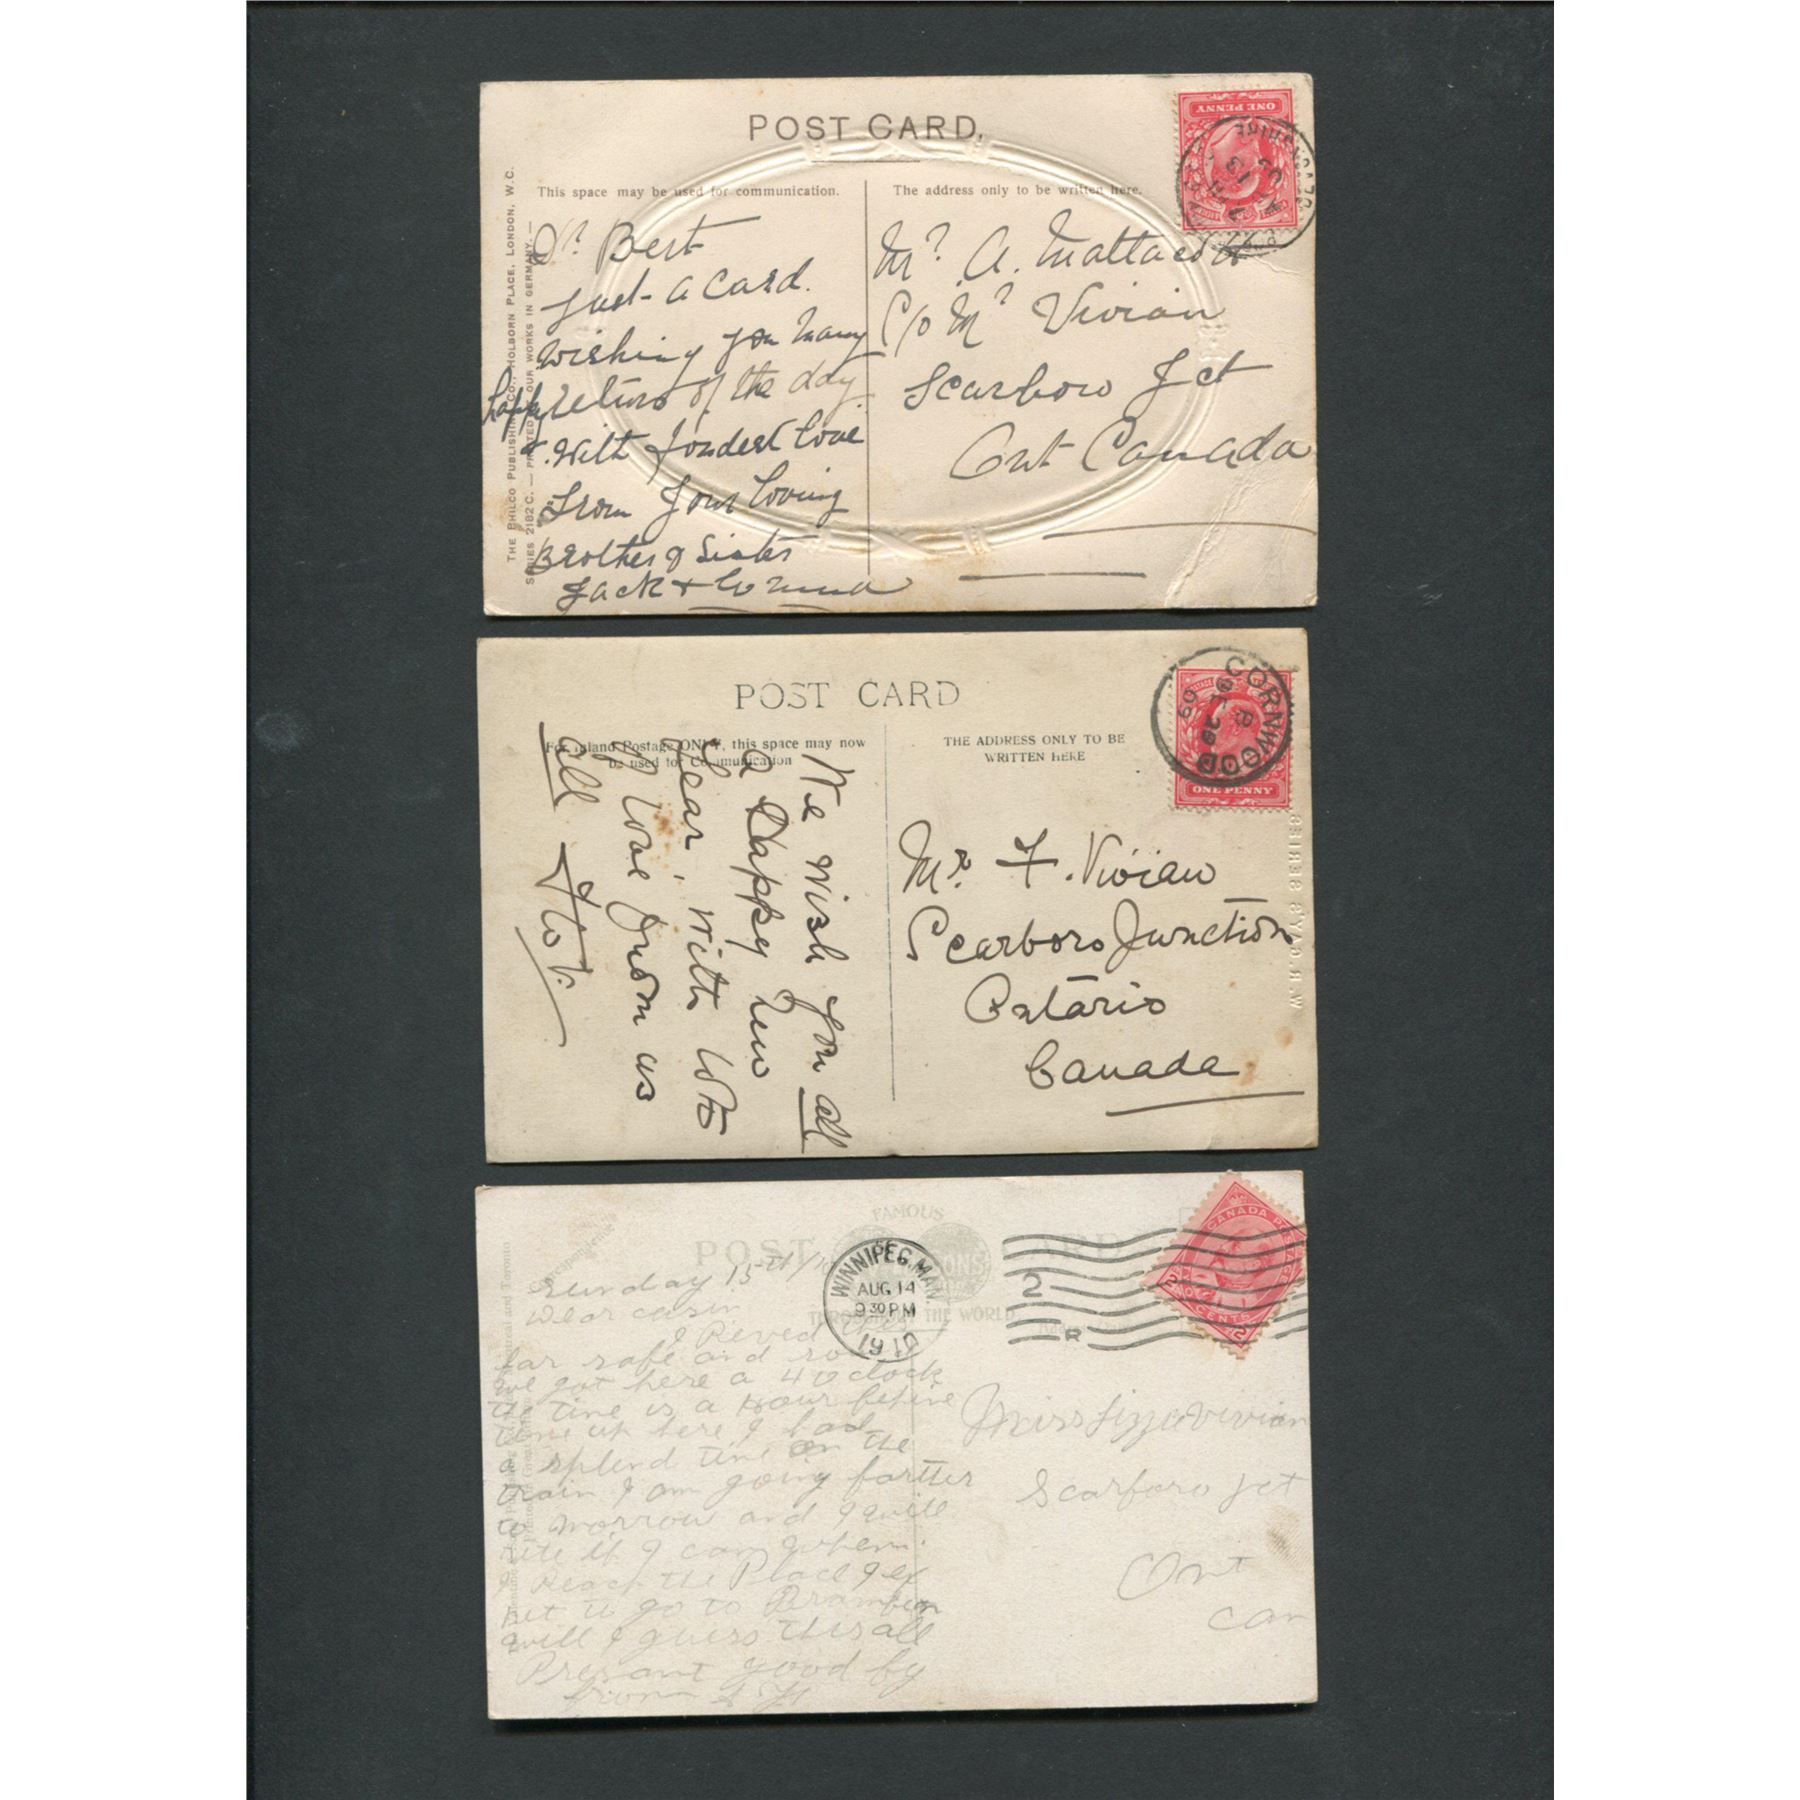 POST CARD.
This space may be used for communication.
The address only to be written here.
THE PHILCO PUBLISHING CO., HOLBORN PLACE, LONDON, W.C.
SERIES 2182 C. — PRINTED OUR WORKS IN GERMANY. —
ONE PENNY
Dr. Bert
Just a Card.
wishing you many
happy returns of the day
& with fondest love
from your loving
Brother & Sister
Jack &
Mr. A.
C/o Mr Vivian
Scarboro Jct
Ont Canada
POST CARD
For Inland Postage ONLY, this space may now
be used for Communication
THE ADDRESS ONLY TO BE
WRITTEN HERE
CORNWOOD
DE 29
09
ONE PENNY
We wish you all
a Happy New
Year, with lots
of love from us
all
Mr. F. Vivian
Scarboro Junction
Ontario
Canada
POST CARD
FAMOUS
THROUGHOUT THE WORLD
Correspondence
WINNIPEG, MAN.
AUG 14
9 30 PM
1910
2
R
CANADA POSTAGE
2 TWO CENTS 2
Sunday 15th/10
Dear cusin
I Reved
far safe and
we got here a 4 oclock
the time is a hour behine
time up here I had
a splend time on the
train I am going farther
to morrow and I will
rite if I can when
I Reach the Place I ex
pet to go to Brandon
will I guess this all
Presant good by
from
Miss Lizzie Vivian
Scarboro Jct
Ont
can